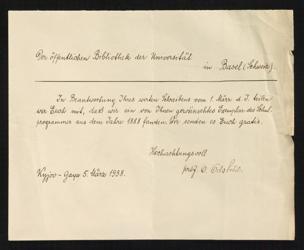 Der öffentlichen Bibliothek der Universität
in Basel (Schweiz).
In Beantwortung Ihres werten Schreibens vom 1. März d. J. teilen
wir Euch mit, dass wir ein von Ihnen gewünschtes Exemplar des Schul-
programmes aus dem Jahre 1888 fanden. Wir senden es Euch gratis.
Hochachtungsvoll
Kyjov - Gaya 5. März 1938.
prof. O.